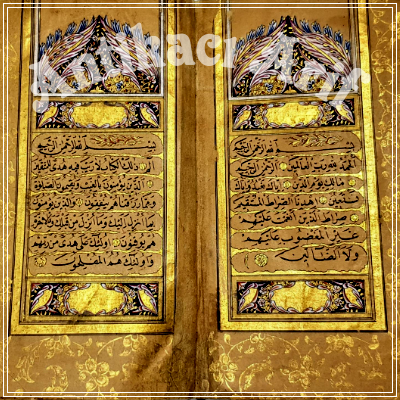 بسم الله الرحمن الرحيم
الحمد لله رب العالمين الرحمن الرحيم
مالك يوم الدين اياك نعبد واياك
نستعين اهدنا الصراط المستقيم
صراط الذين انعمت عليهم
غير المغضوب عليهم
ولا الضالين
بسم الله الرحمن الرحيم
الم ذلك الكتاب لا ريب فيه هدى للمتقين
الذين يؤمنون بالغيب ويقيمون الصلوة
ومما رزقناهم ينفقون والذين يؤمنون
بما انزل اليك وما انزل من قبلك وبالاخرة
هم يوقنون اولئك على هدى من ربهم
واولئك هم المفلحون
Antikacı